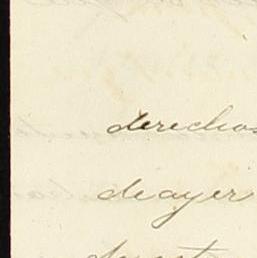 derechos
de ayer